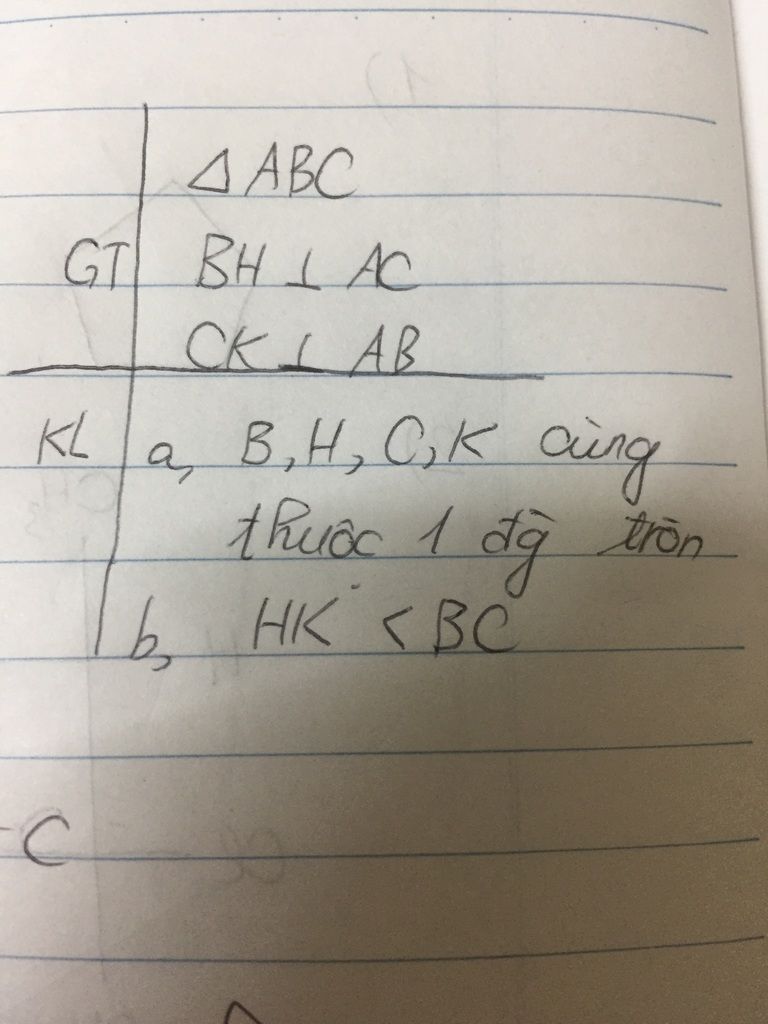 △ ABC
GT BH ⊥ AC
CK ⊥ AB
KL a, B, H, C, K cùng
thuộc 1 đg̀ tròn
b, HK < BC
C